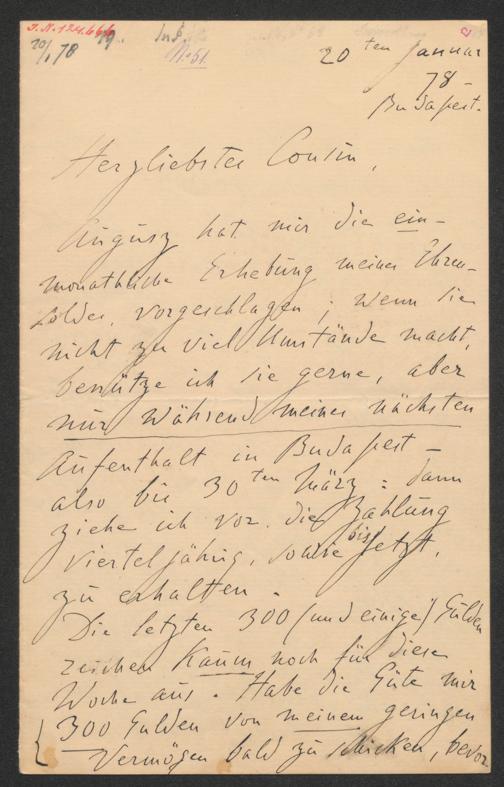 J.N. 124.666
20/1 78
No 51.
20ten Januar
78 –
Budapest.
Herzliebster Cousin,
Augusz hat mir die ein-
monathliche Erhebung meines Ehren-
soldes, vorgeschlagen; wenn sie
nicht zu viel Umstände macht,
benütze ich sie gerne, aber
nur während meines nächsten
Aufenthalt in Budapest –
also bis 30ten März: dann
ziehe ich vor, die Zahlung
vierteljährig, sowie bis jetzt,
zu erhalten.
Die letzten 300 (und einige) Gulden
reichen kaum noch für diese
Woche aus. Habe die Güte mir
300 Gulden von meinem geringen
Vermögen bald zu schicken, bevor